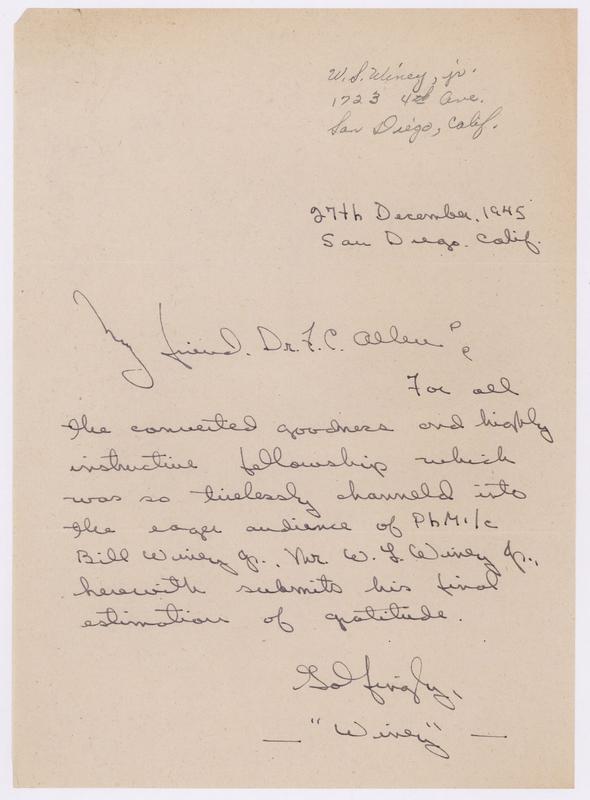 W. S. Winey, jr.
1723 4th Ave.
San Diego, Calif.
27th December, 1945
San Diego. Calif.
My friend. Dr. F. C. Allen
For all
the converted goodness and highly
instructive fellowship which
was so tirelessly channeld into
the eager audience of PhM.1/c
Bill Winey jr., Mr. W. S. Winey jr.,
herewith submits his final
estimation of gratitude.
Golfingly,
— "Winey" —